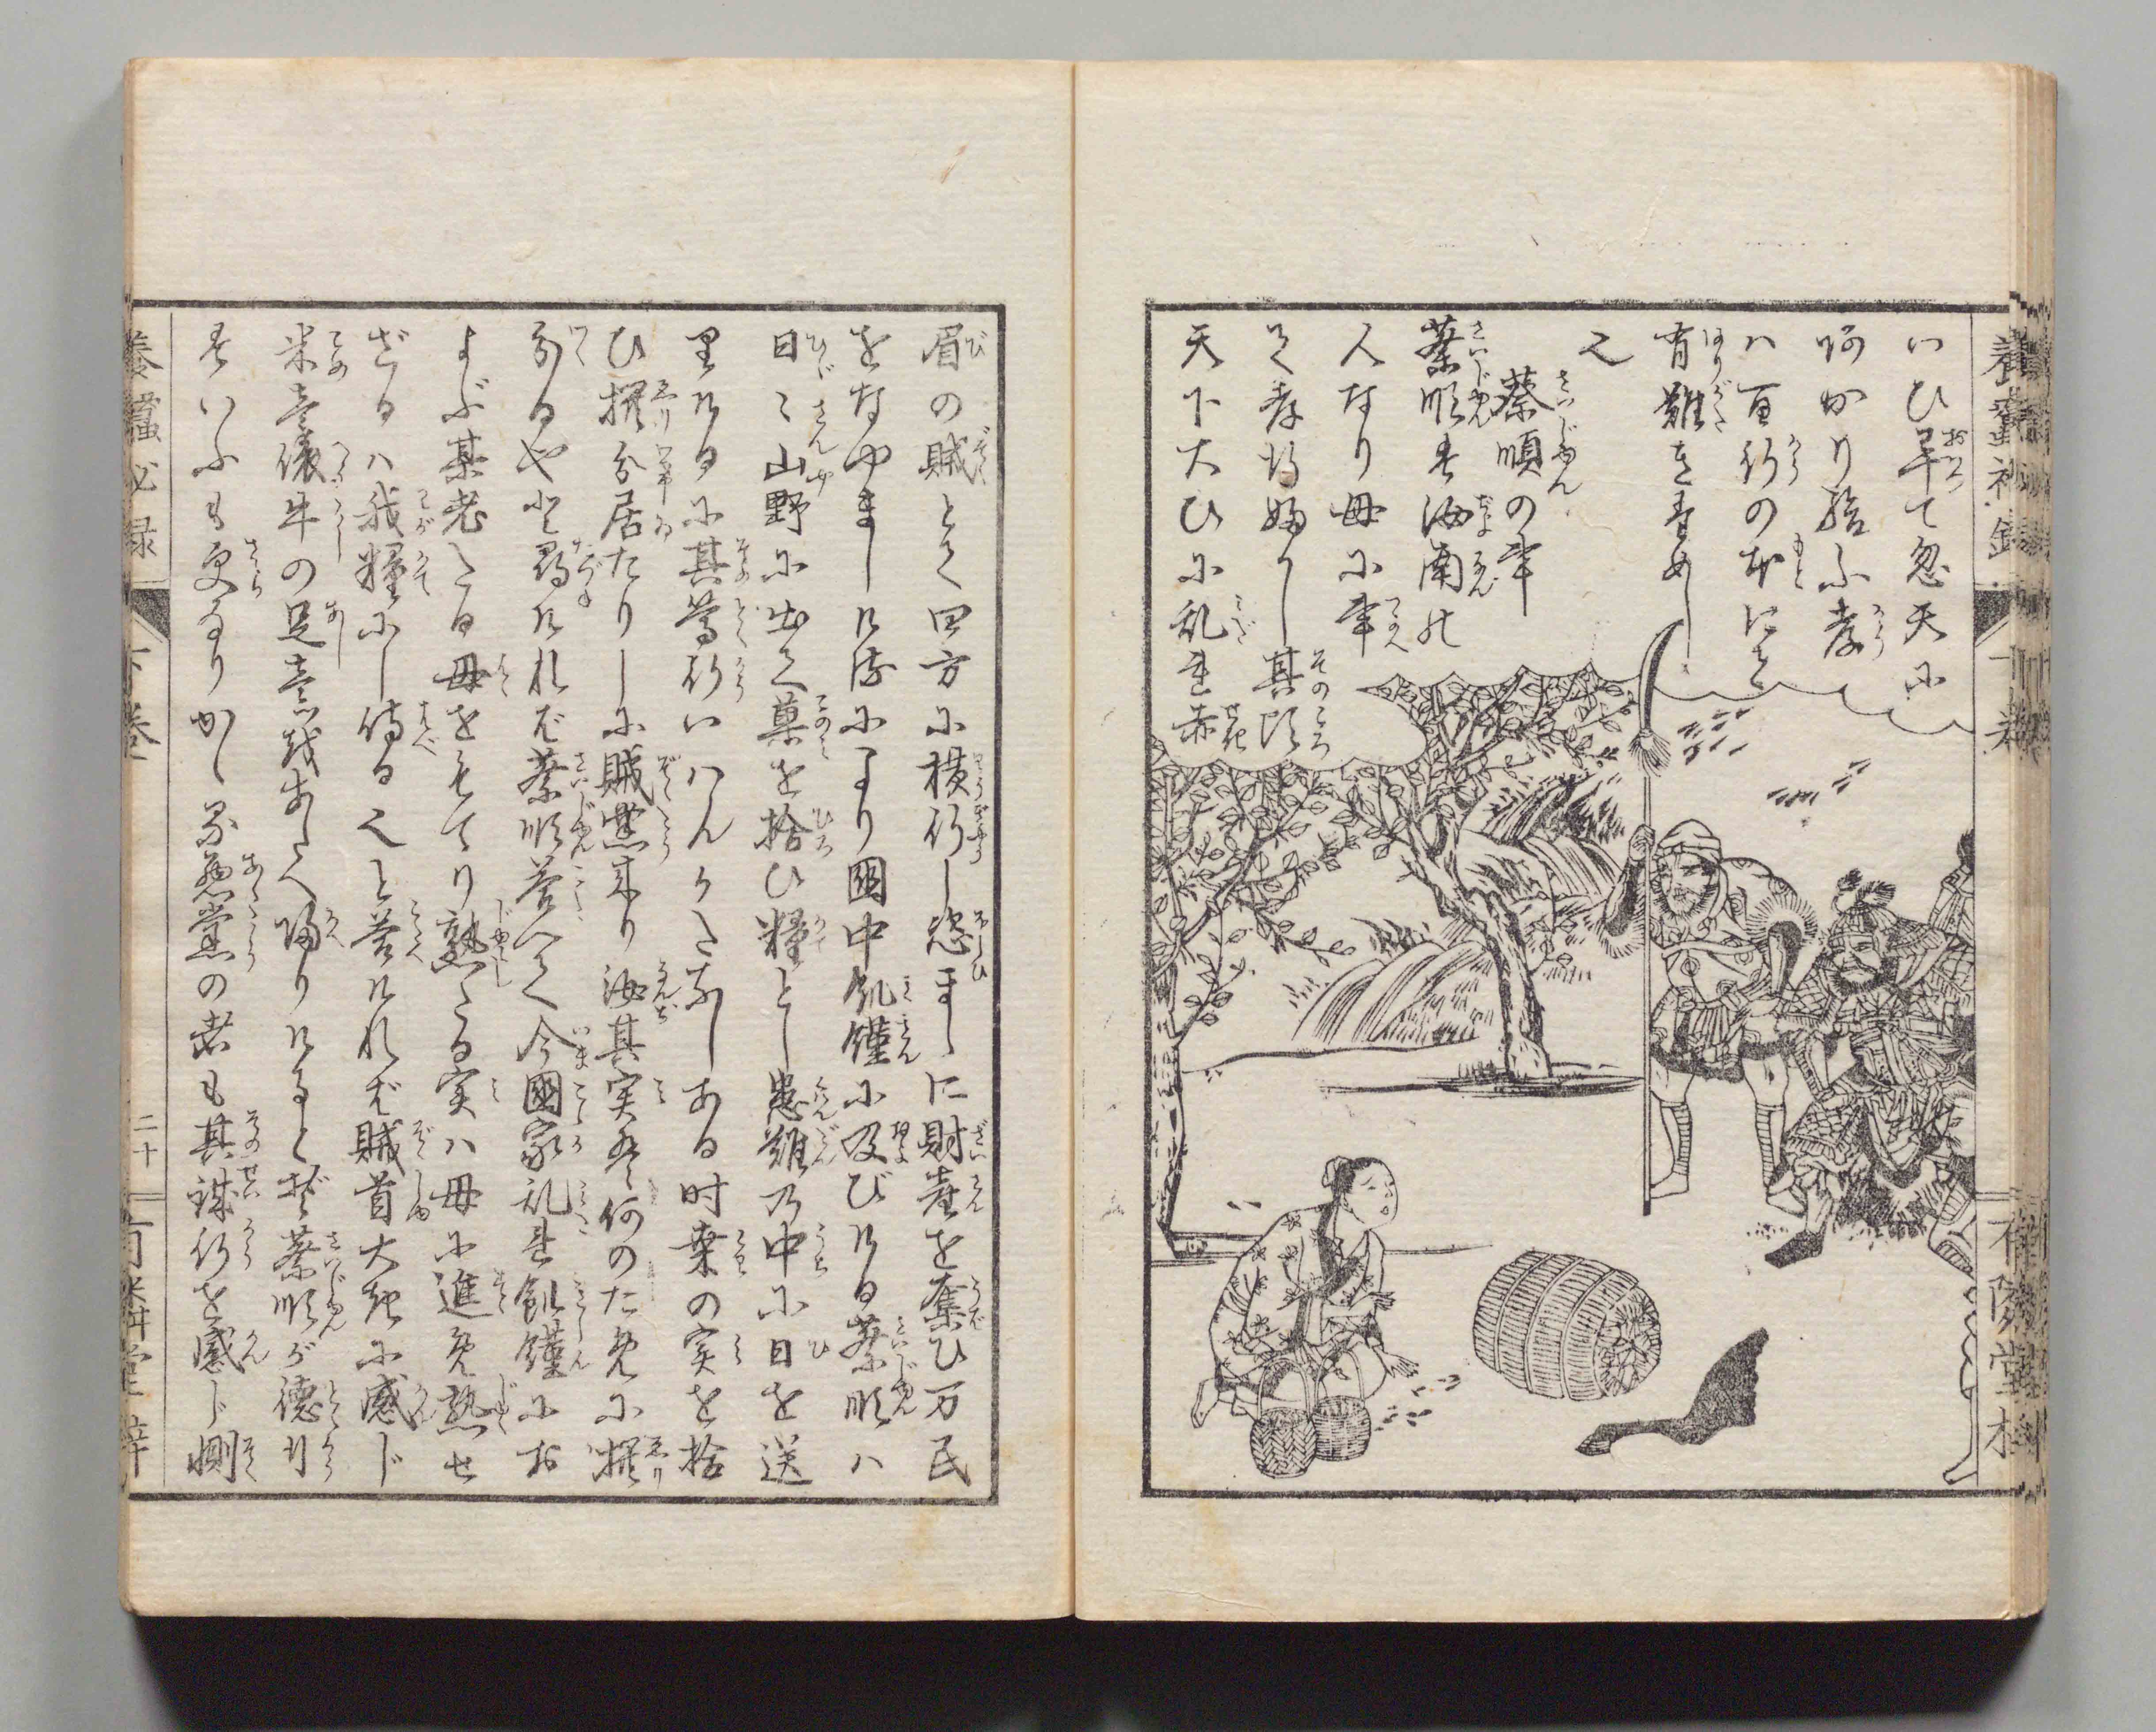 いひ畢て忽天に
のぼり給ふ孝
ハ百行の本にて
有難き事なめし
也
蔡順の事
蔡順は汝南の
人なり母に事
て孝行成りし其頃
天下大ひに乱れ赤
眉の賊とて四方に横行し恣まゝに財産を奪ひ万民
をなやましける故国中飢饉に及びける蔡順ハ
日々山野に出て菓を拾ひ糧とし患難の中に日を送
りけるに其篤行いハんかたなしある時桑の実を拾
ひ撰分居たりしに賊党来り汝其実を何のために撰
分るやと尋けれバ蔡順答へて今国家乱れ飢饉にお
よぶ某老たる母をもてり熟たる実ハ母に進め熟せ
ざるハ我糧にし侍る也と答けれバ賊首大きに感じ
米壱俵牛の足壱ツあたへ帰りけるとぞ蔡順が徳行
はいふも更なりかゝる悪党の者も其誠行を感じ惻
養蚕必録 下巻 二十 有隣堂梓